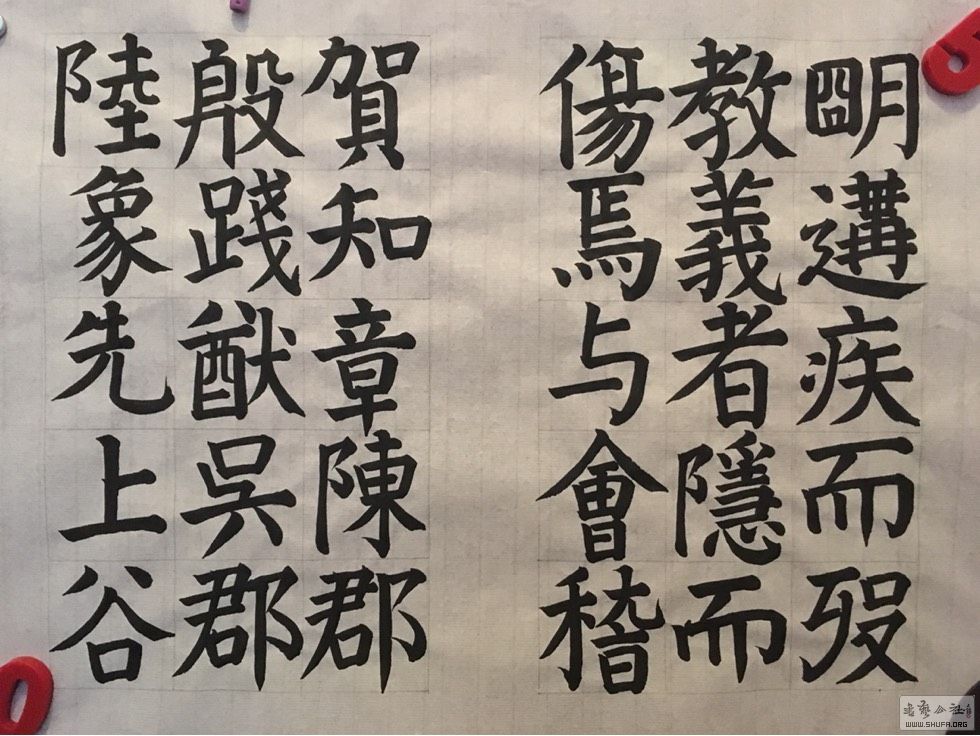 明遘疾而歿
教義者隱而
傷焉与會稽
賀知章陳郡
殷踐猷吳郡
陸象先上谷
5
0
WWW.SHUFA.ORG